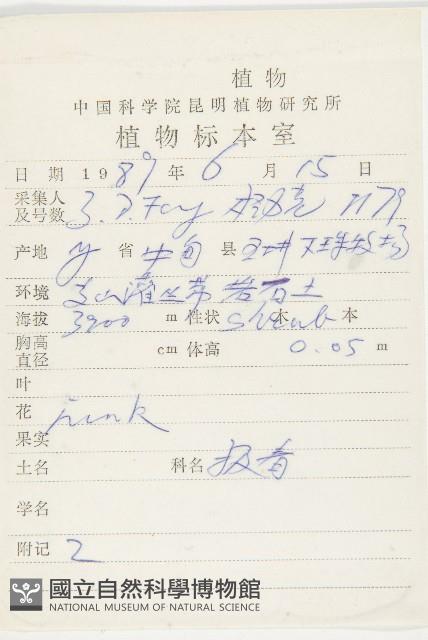 植物
中国科学院昆明植物研究所
植物标本室
日期 1989年6月15日
采集人
及号数 1179
产地 省中甸县
环境 高山灌丛带岩石土
海拔 3900 m 性状 Shrub 本
胸高
直径 cm 体高 0.05 m
叶
花 pink
果实
土名 科名
学名
附记 2
國立自然科學博物館
NATIONAL MUSEUM OF NATURAL SCIENCE